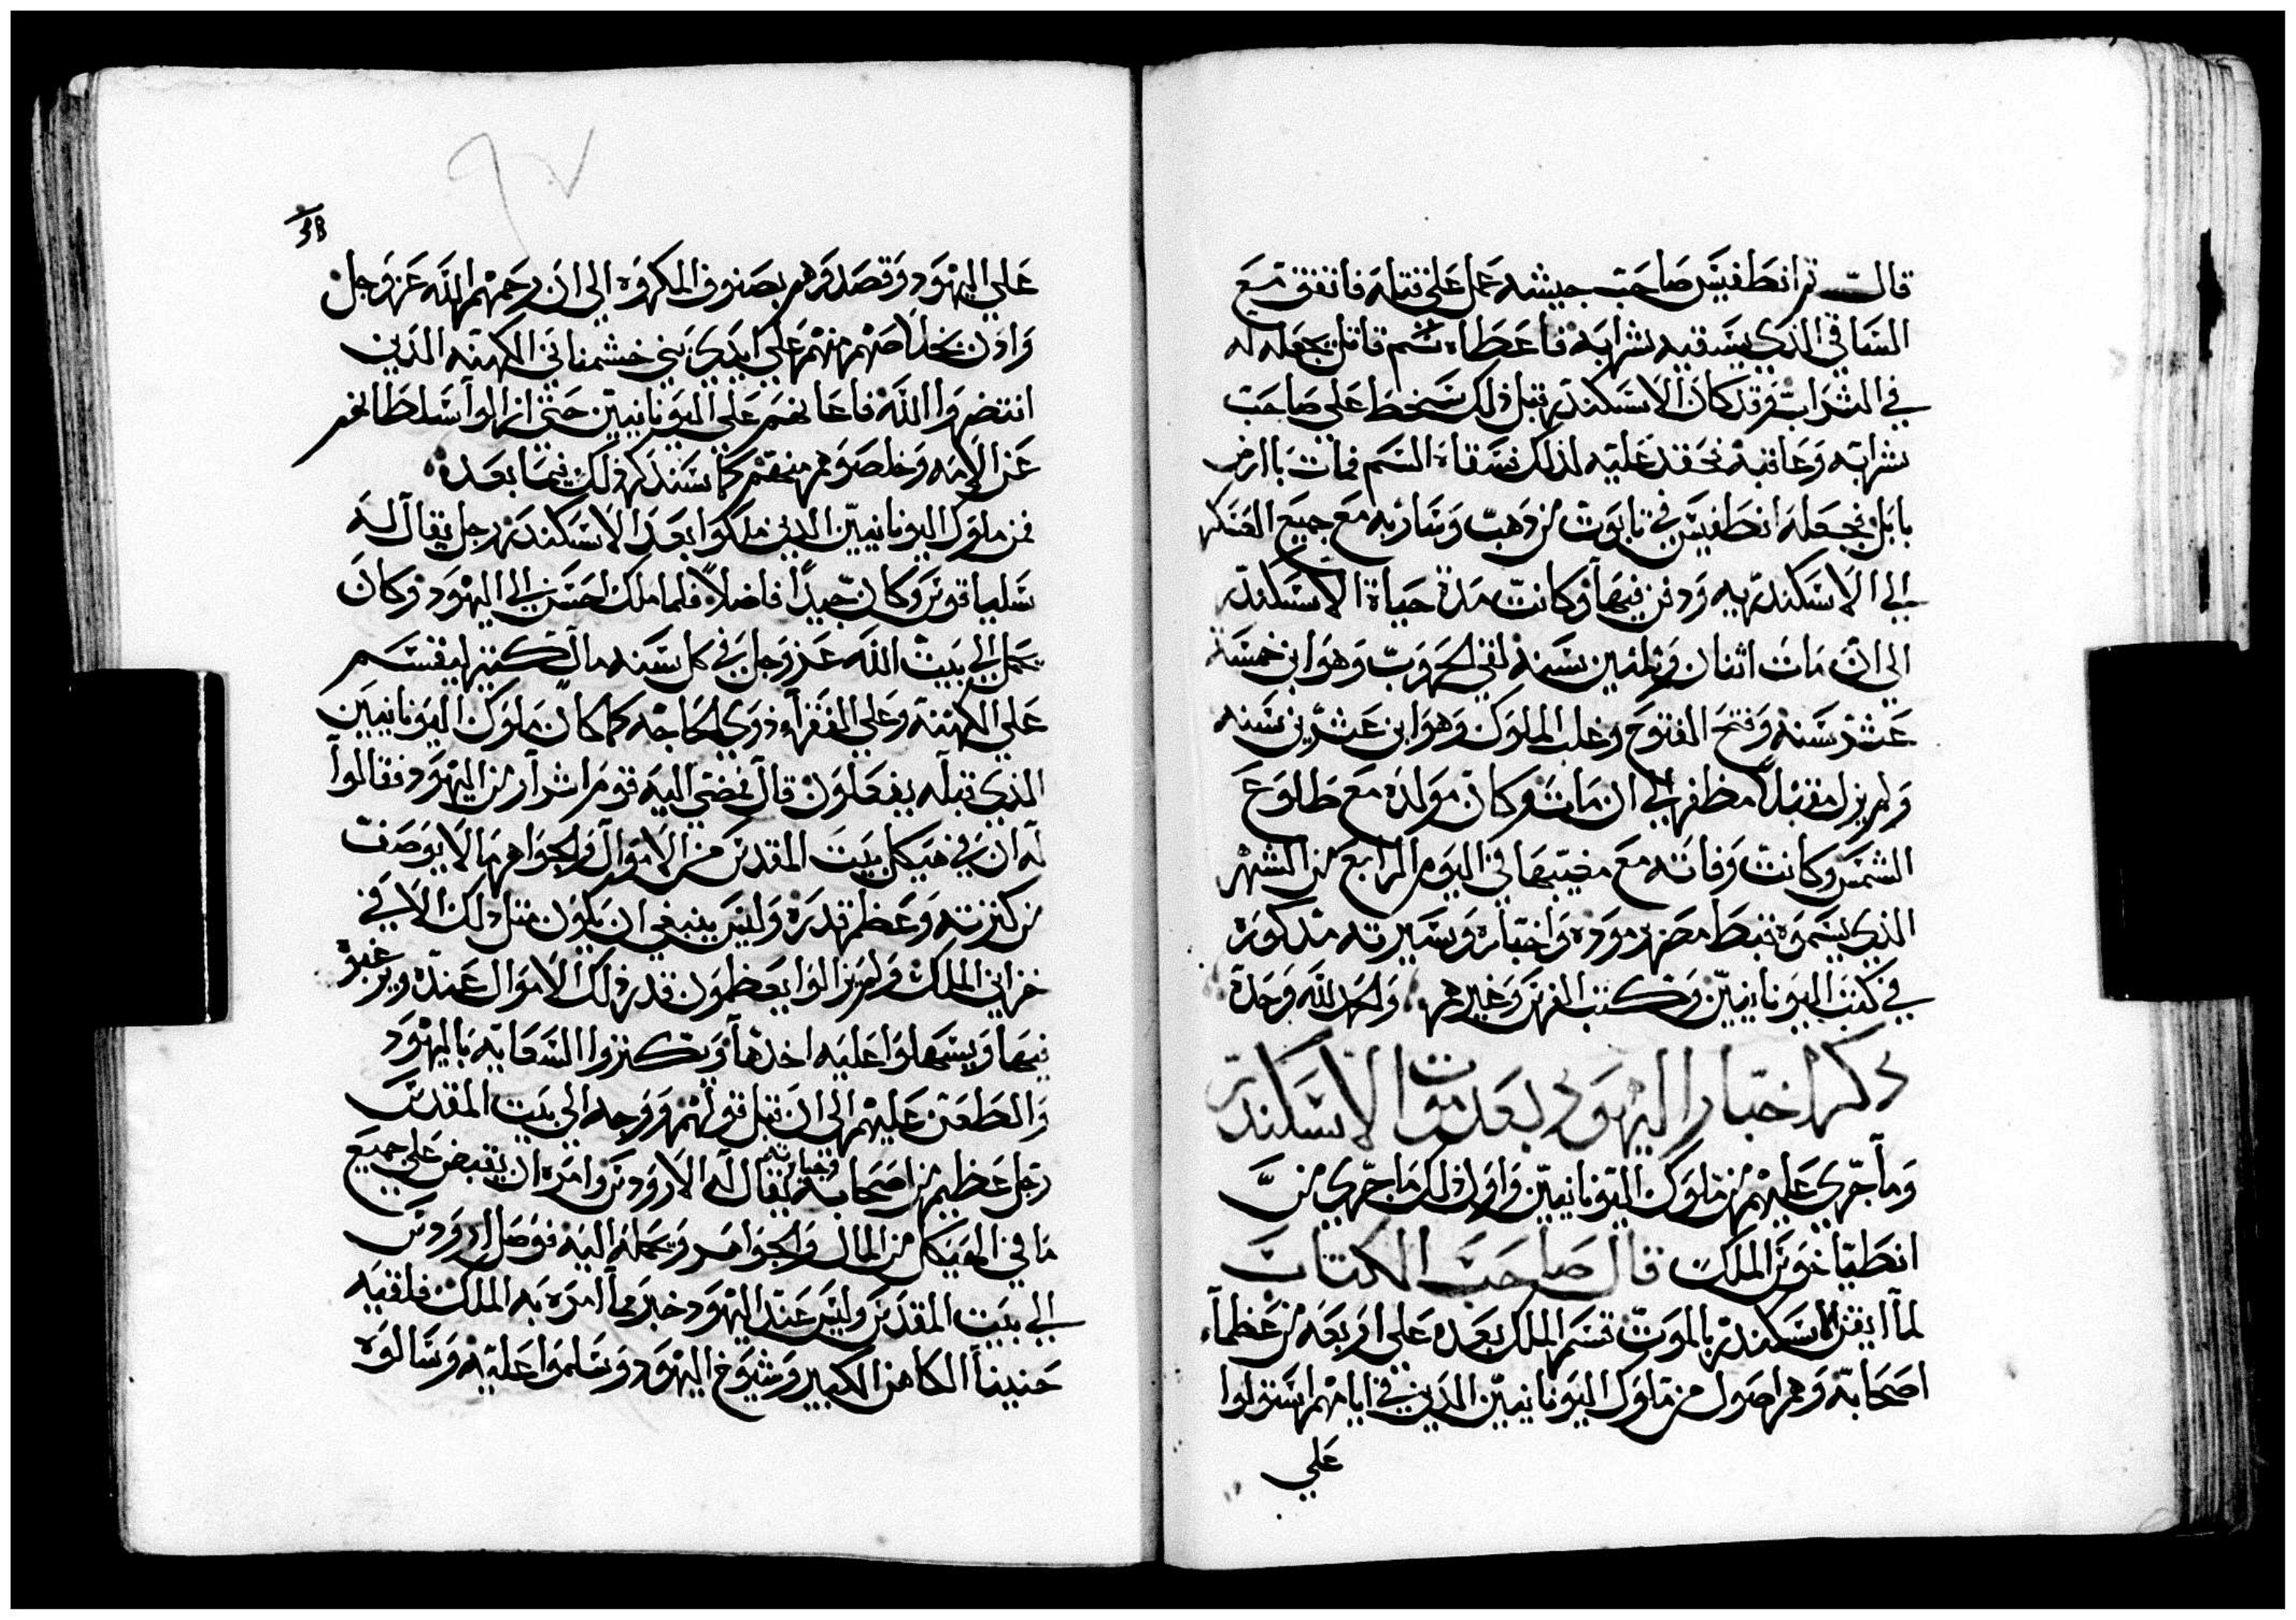 قال ثم انطفيس صاحب جيشه عمل على قتله فاتفق مع
الساقي الذي يسقيه شرابه فاعطاه سم قاتل يجعله له
في الشراب وقد كان الاسكندر قبل ذلك سخط علي صاحب
شرابه وعاقبه فحقد عليه لذلك فسقاه السم فمات باارض
بابل فجعله انطفيس في تابوت من دهب وسار به مع جميع العسكر
الي الاسكندريه ودفن فيها وكانت مدة حياة الاسكندر
الي ان مات اثنان وثلثين سنه لقي الحروب وهو ابن خمسة
عشر سنه وفتح الفتوح وغلب الملوك وهو ابن عشرين سنه
ولم يزل مقبلا مظفر الي ان مات وكان مولده مع طلوع
الشمس وكانت وفاته مع مغيبها في اليوم الرابع من الشهر
الذي يسموه قبط مصر موده واخباره وسيرته مدكوره
في كتب اليونانيين وكتب الفرس وغيرهم والحمد لله وحده
دكر اخبار اليهود بعد موت الاسكندر
وما جري عليهم من ملوك اليونانيين واول دلك ما جري من
انطياخوس الملك قال صاحب الكتاب
لما ايقن الاسكندر بالموت قسم الملك بعده علي اربعه من عظماء
اصحابه وهم اصول من ملوك اليونانيين الذين في ايامهم استولوا
علي
38
علي اليهود وقصدوهم بصنوف المكروه الي ان رحمهم الله عز وجل
واذن بخلاصهم منهم علي ايدي بني خشمناي الكهنه الذين
انتصروا الله فاعانهم علي اليونانيين حتي ازالوا سلطانهم
عن الامه وخلصوهم منهم كما سنذكر ذلك فيما بعده
فمن ملوك اليونانيين الدين ملكوا بعد الاسكندر رجل يقال له
سلياقوس وكان جيدا فاضلا فلما ملك احسن الي اليهود وكان
يحمل الي بيت الله عز وجل في كل سنه مال كتير ليقسم
علي الكهنه وعلي الفقراء وذوي الحاجه كما كان ملوك اليونانيين
الذي قبله يفعلون قال فمضي اليه قوم اشرار من اليهود فقالوا
له ان في هيكل بيت المقدس من الاموال والجواهر مالا يوصف
من كترته وعظم قدره وليس ينبغي ان يكون متل دلك الا في
خزاين الملك ولم يزالوا يعظمون قدر ذلك الاموال عنده ويرغبوه
فيها ويسهلوا عليه اخدها ويكتروا السعايه باليهود
والطعن عليهم الي ان قبل قولهم ووجه الي بيت المقدس
رجل عظيم من اصحابه يقال له الاروودس وامره ان يقبض علي جميع
ما في الهيكل من المال والجواهر ويحمله اليه فوصل اروودس
الي بيت المقدس وليس عند اليهود خبر بما امره به الملك فلقيه
حنينا الكاهن الكبير وشيوخ اليهود وسلموا عليه وسالوه